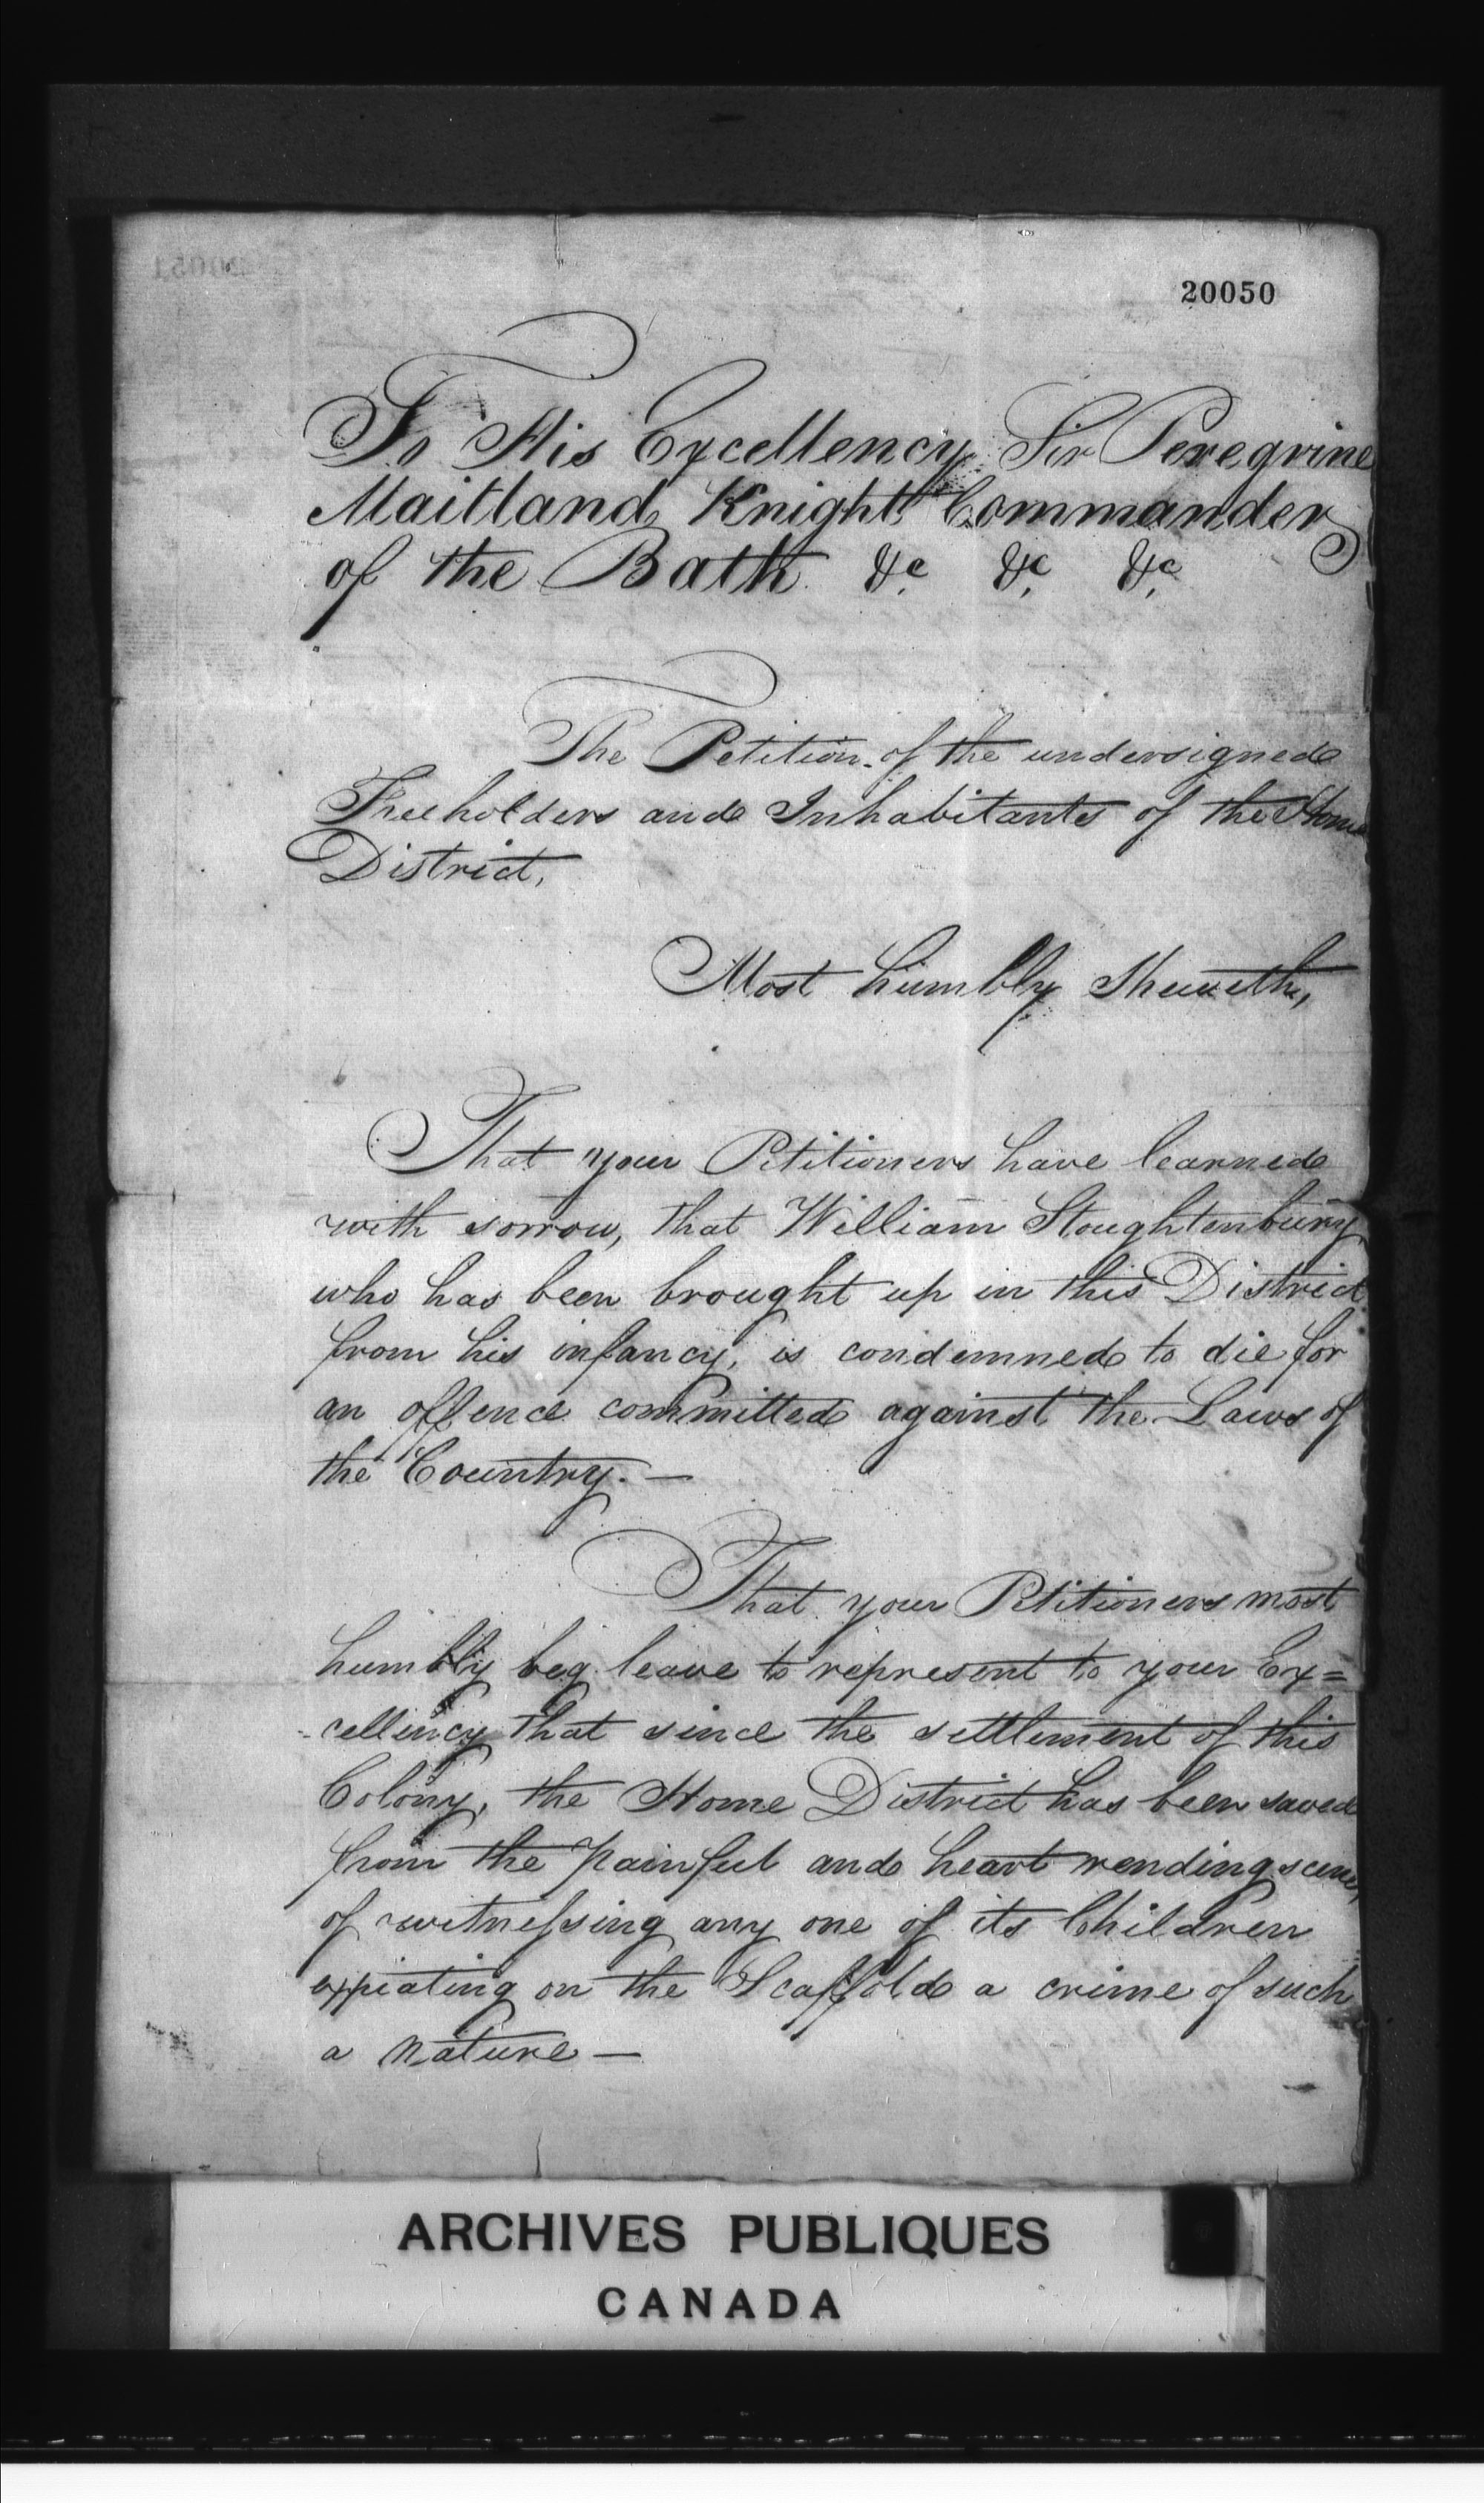 20051
20050
To His Excellency Sir Peregrine
Maitland Knight Commander
of the Bath &c &c &c
The Petition of the undersigned
Freeholders and Inhabitants of the Home
District,
Most humbly Sheweth,
That your Petitioners have learned
with sorrow, that William Stoughtenbury
who has been brought up in this District
from his infancy, is condemned to die for
an offence committed against the Laws of
the Country. —
That your Petitioners most
humbly beg leave to represent to your Ex=
-cellency that since the settlement of this
Colony, the Home District has been saved
from the painful and heart rending scene,
of witnessing any one of its Children
expiating on the Scaffold a crime of such
a nature —
ARCHIVES PUBLIQUES
CANADA